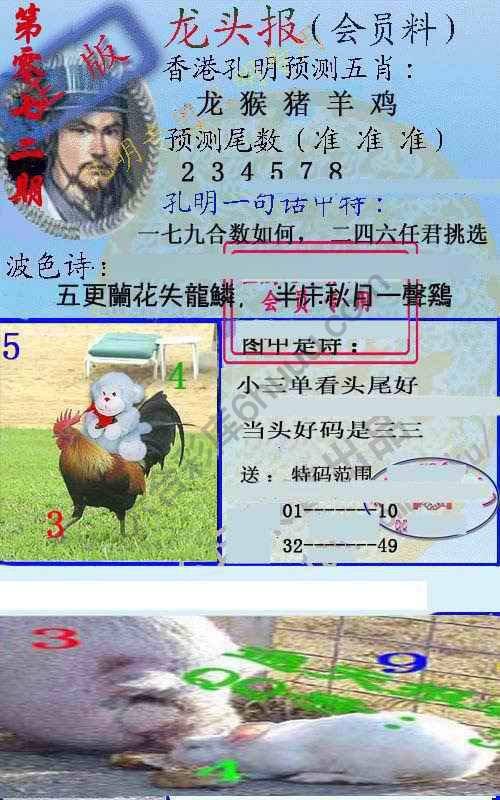 第零廿二期
版
龙头报(会员料)
香港孔明预测五肖:
龙 猴 猪 羊 鸡
预测尾数(准 准 准)
2 3 4 5 7 8
孔明一句话中特:
一七九合数如何, 二四六任君挑选
波色诗:
五更蘭花失龍鱗, 半床秋月一聲鷄
会员专用
图中是诗:
小三单看头尾好
当头好码是三三
送: 特码范围
01-------10
32-------49
5
4
3
3
9
4